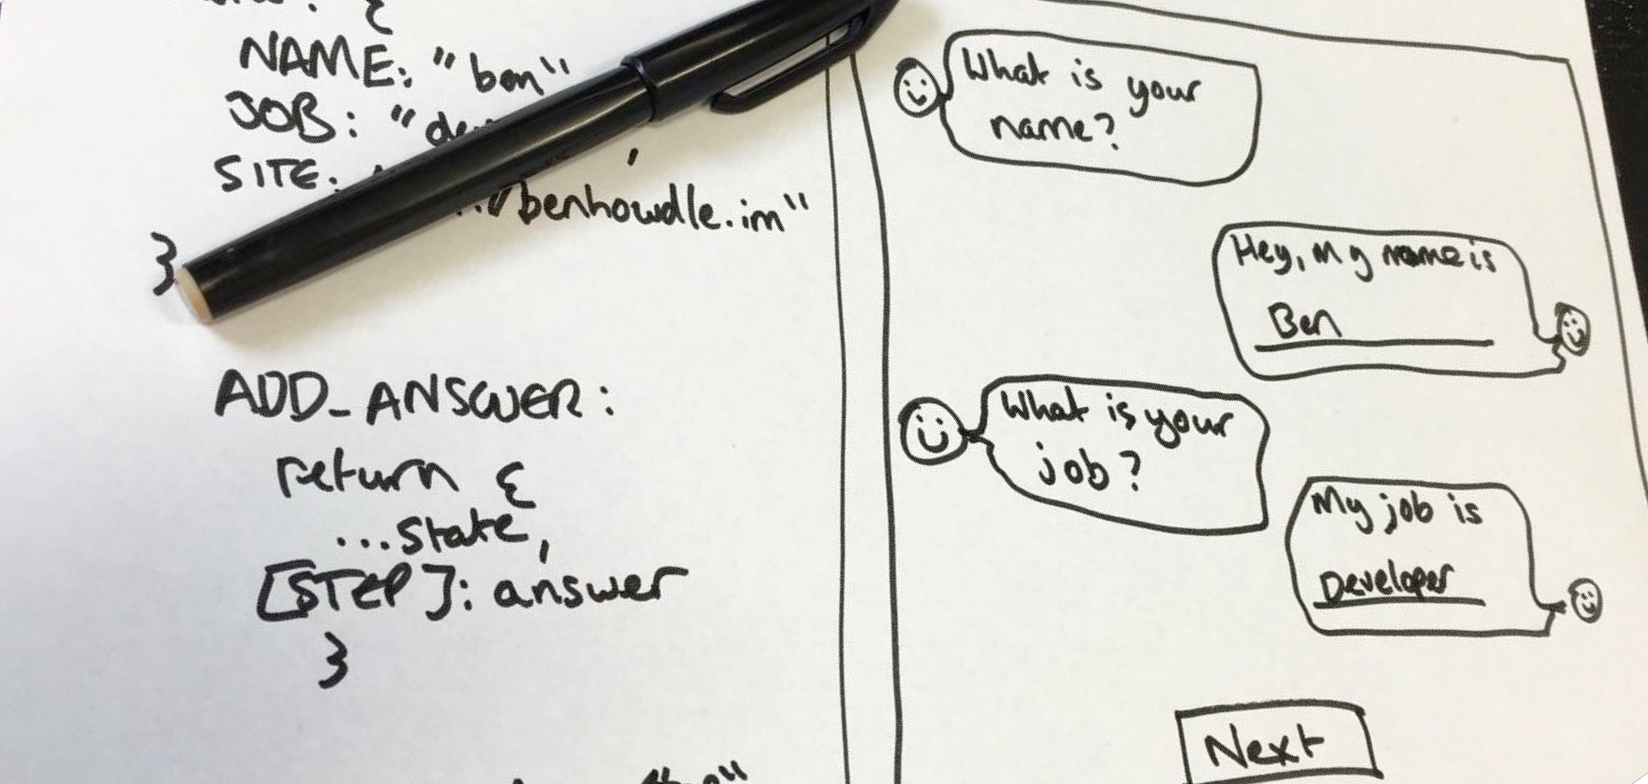 {
NAME: "ben"
JOB: "de
SITE:
/benhowdle.im"
}
ADD_ANSWER:
return {
...state,
[STEP]: answer
}
What is your
name?
Hey, My name is
Ben
What is your
job?
My job is
Developer
Next